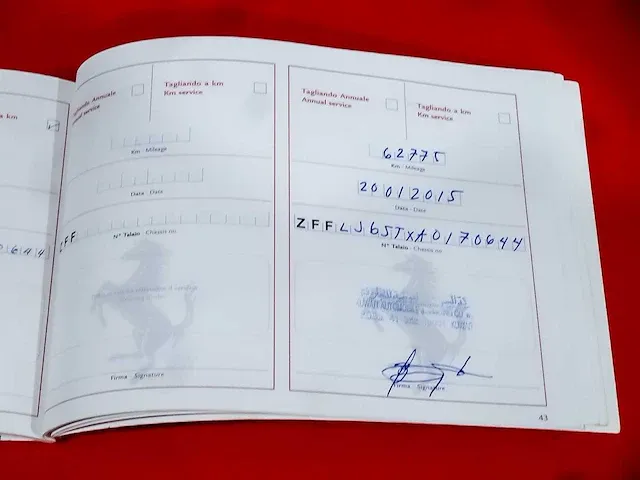 a km
0644
Tagliando Annuale
Annual service
Tagliando a km
Km service
Km - Mileage
Data - Date
ZFF
N° Telaio - Chassis no.
Firma - Signature
Tagliando Annuale
Annual service
Tagliando a km
Km service
62775
Km - Mileage
20012015
Data - Date
ZFFLJ65TXA0170644
N° Telaio - Chassis no.
Firma - Signature
43